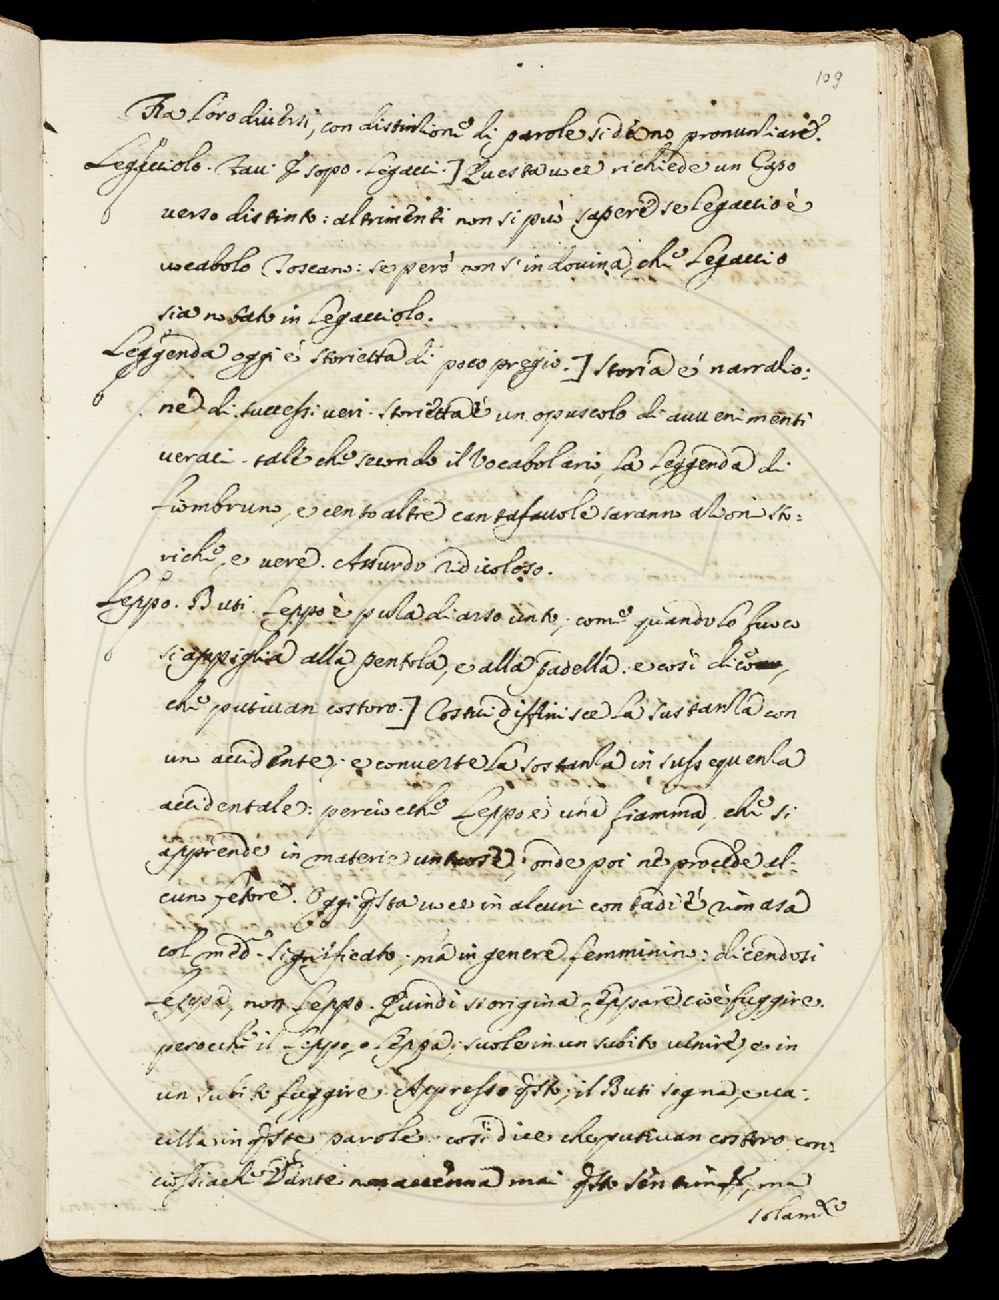 109
Fra loro diuersi, con distinzione di parole si deno pronunziare.
Legacciolo. Tau: Esopo. Legacci.] Questa uoce richiede un Capo
uerso distinto: altrimenti non si può sapere se legaccio è
uocabolo Toscano: se però non s'indouina, che Legaccio
sia notato in legacciolo.
Leggenda oggi è storietta di poco pregio.] Storia è narrazio:
ne di successi ueri. Storietta è un opuscolo di auuenimenti
ueraci. tale che secondo il Vocabolario, la Leggenda di
Liombruno, e cento altre cantafauole saranno azioni sto:
riche, e uere. Assurdo ridicoloso.
Leppo. Buti. Leppo è puza di arso unto, come quando lo fuoco
si appiglia alla pentola, e alla padella. e così dice,
che putiuan costoro.] Costui diffinisce la sustanza con
un accidente; e conuerte la sostanza in sussequenza
accidentale: perciocche Leppo è una fiamma, che si
apprende in materie untuose; onde poi ne procede al:
cuno fetore. Oggi qsta uoce in alcuni contadi è rimasa
col med. significato; ma in genere femminino: dicendosi
Leppa, non Leppo. Quindi si origina Leppare cioè fuggire.
perocche il Leppo, o Leppa, suole in un subito uenire, e in
un subito fuggire. Appresso qsto, il Buti sogna, e ua:
cilla in qste parole. così dice che putiuan costoro. con:
ciossiache Dante non auea mai qsto, ma
solamte